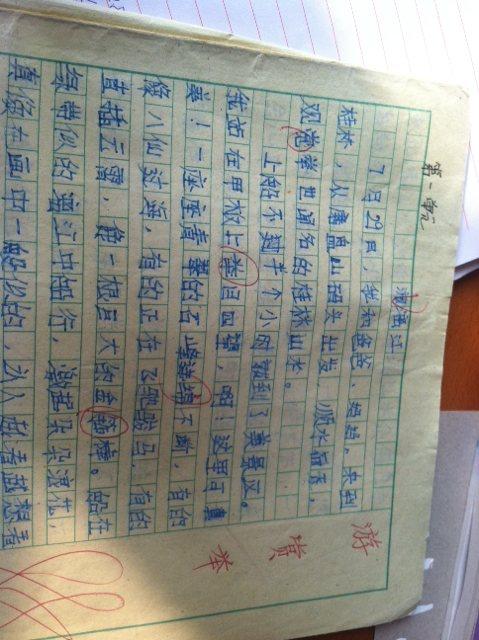 7月29日，我和爸爸、妈妈，来到
桂林，从磨盘山码头出发，顺水
观赏举世闻名的桂林山水。
上船不到半个小时就到了美景区。
我站在甲板上举目四望，啊！这里可真
美！一座座青翠的石峰连绵不断，有的
像八仙过海，有的正在飞跑 马，有的
直插云霄，像一根巨大的金箍棒。船在
绿带似的漓江中航行，激起朵朵浪花，
真像在画中一般似的，让人越看越想看
游
赏
举